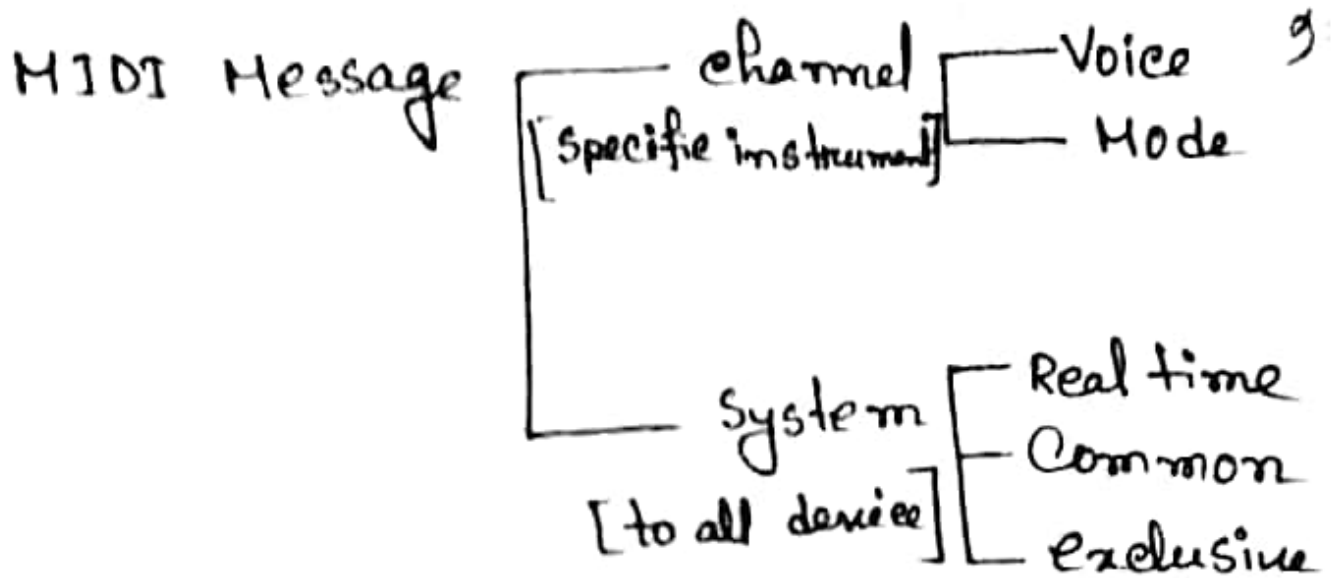 MIDI Message
channel
[specific instrument]
Voice
Mode
System
[to all device]
Real time
Common
exclusive